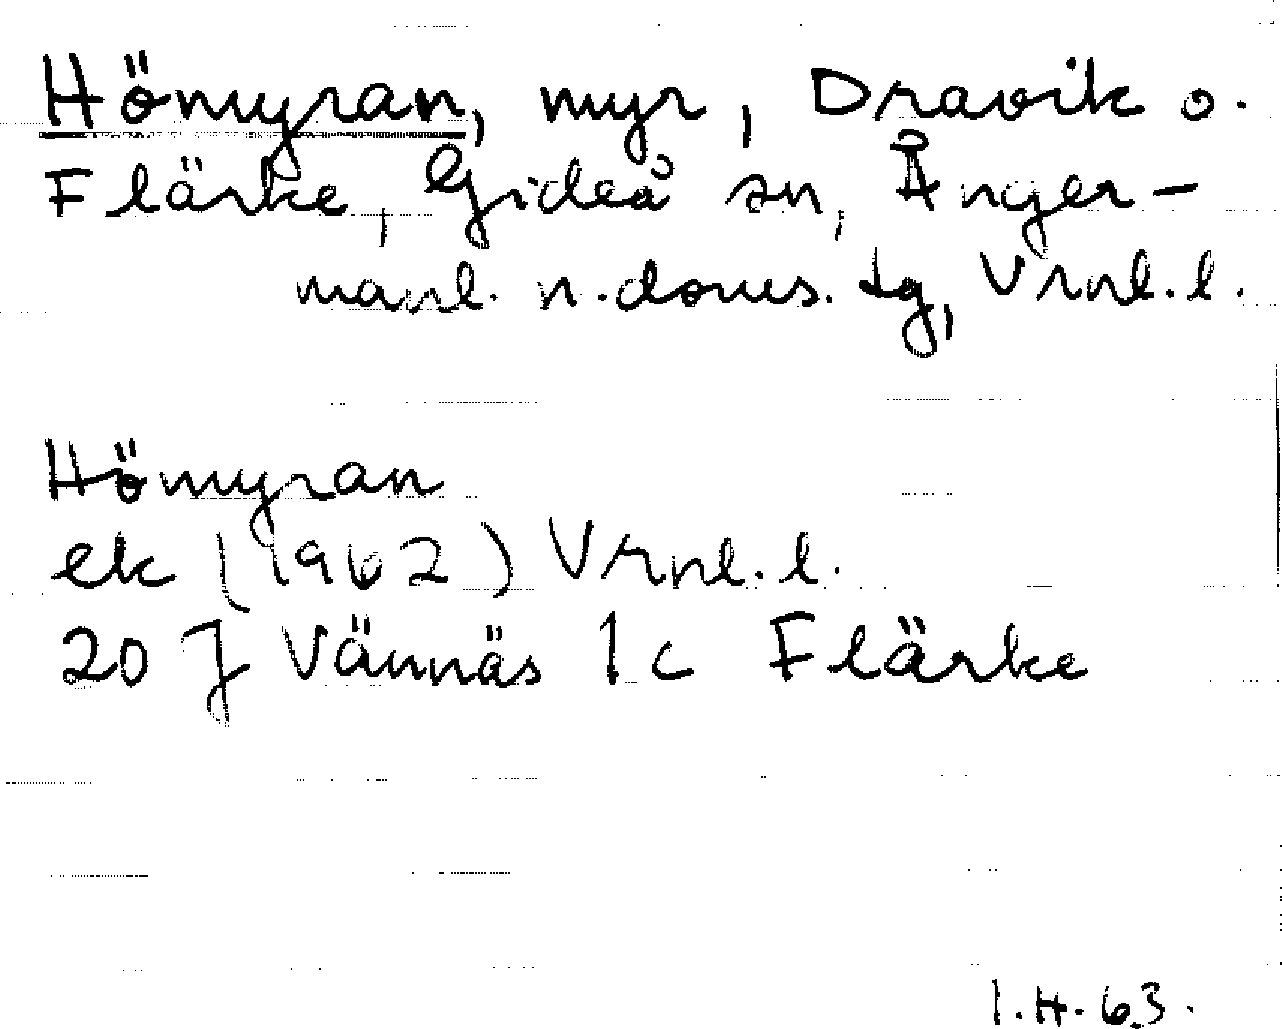 Hömyran, myr, Dravik o.
Flärke, Gideå sn, Ånger-
manl. n. doms. tg, Vrnl. l.
Hömyran
ek (1962) Vrnl. l.
20 J Vännäs 1 c Flärke
I. H. 63.